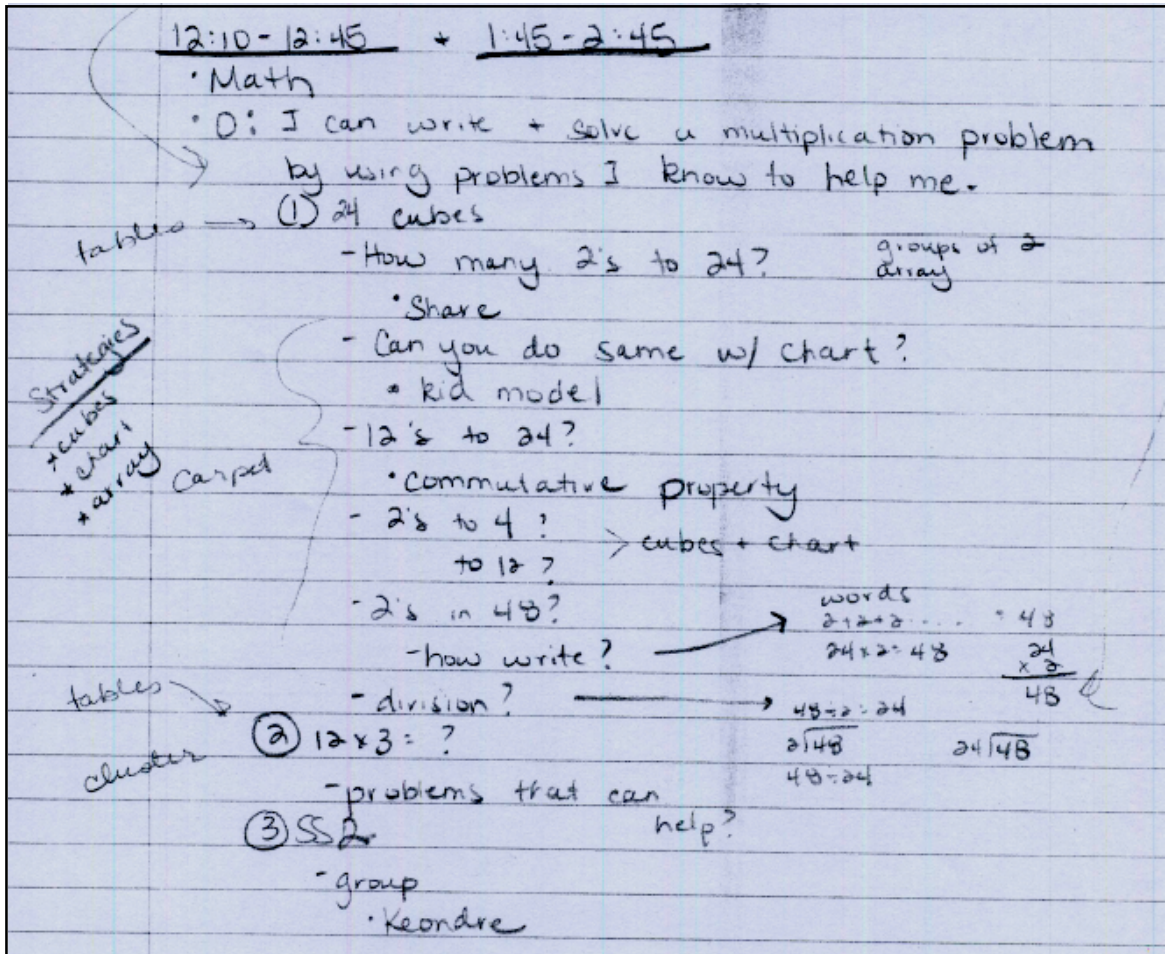 12:10 - 12:45 + 1:45 - 2:45
• Math
• O: I can write + solve a multiplication problem
by using problems I know to help me.
tables → ① 24 cubes
- How many 2's to 24? groups of 2
array
• Share
- Can you do same w/ chart?
• kid model
Strategies
* cubes
* chart
* array
carpet
- 12's to 24?
• commulative property
- 2's to 4 ?
to 12 ? > cubes + chart
- 2's in 48?
- how write? → words
2+2+2 .... = 48
24 x 2 = 48
24
x 2
48
- division? → 48÷2=24
2)48 24)48
48÷24
tables
cluster
② 12 x 3 = ?
- problems that can
help?
③ SS 2
- group
• Keondre